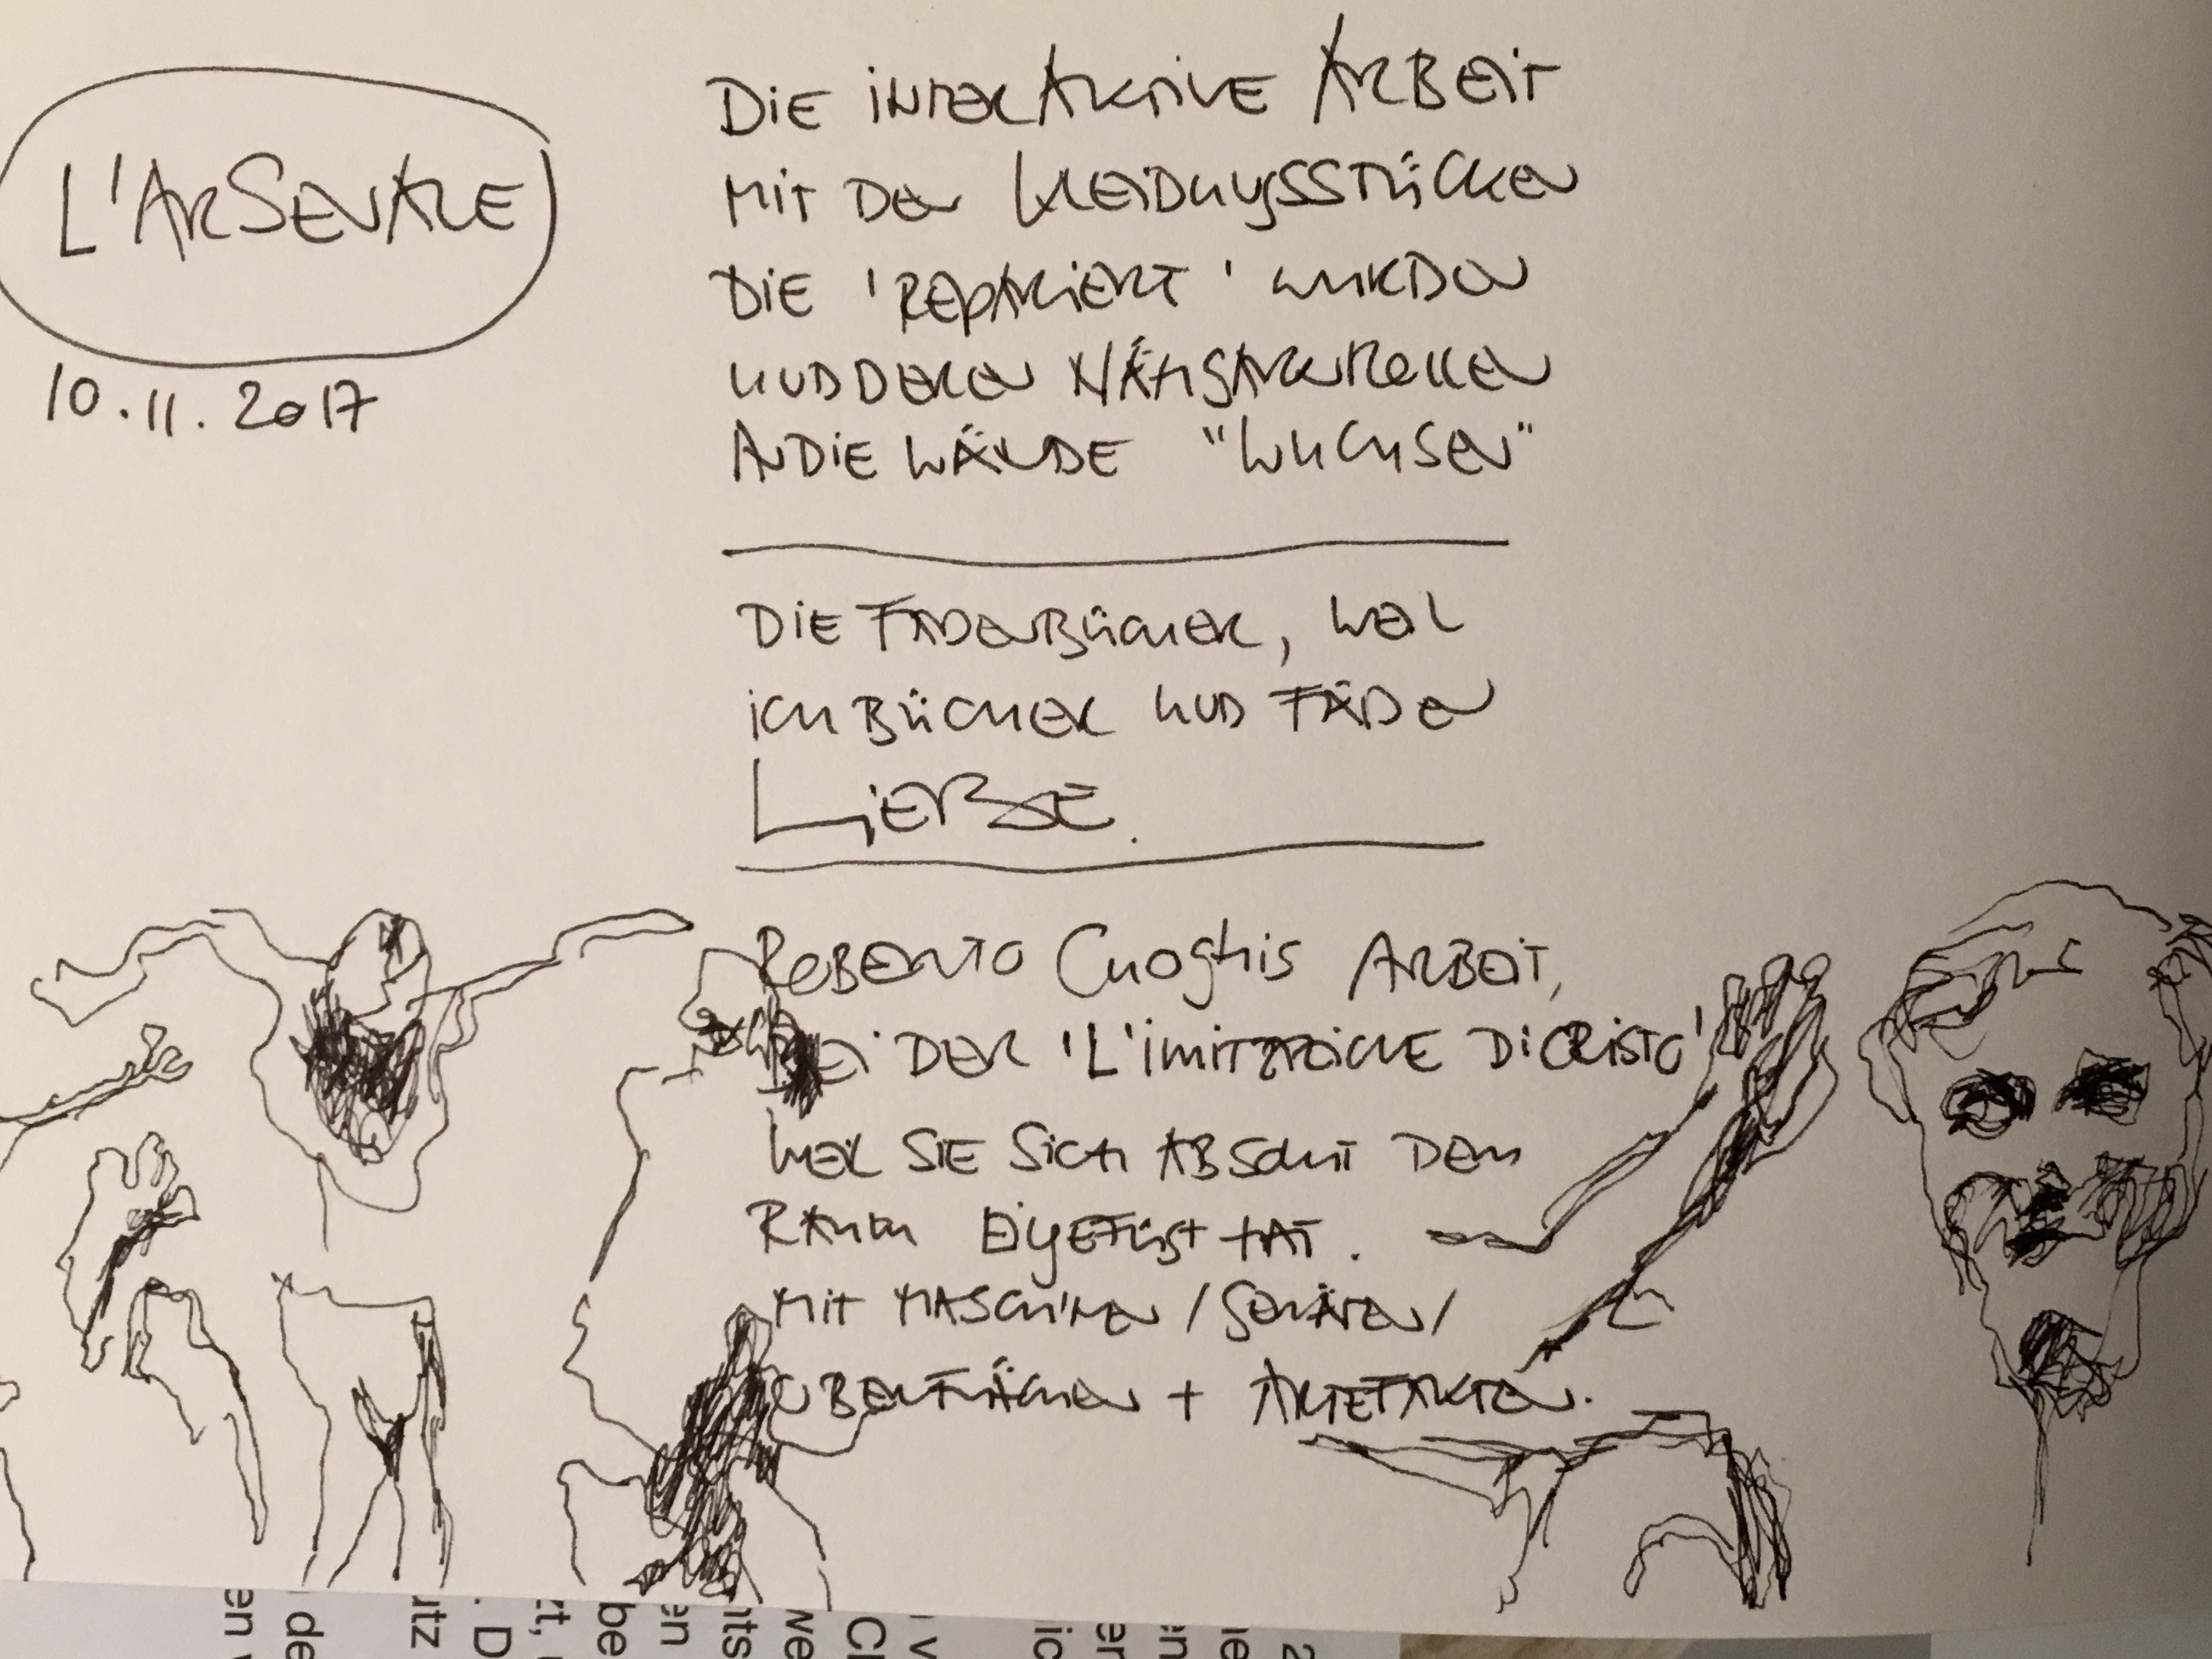 L'ARSENALE
10.11.2017
DIE INTERAKTIVE ARBEIT
MIT DEN KLEIDUNGSSTÜCKEN
DIE 'REPARIERT' WURDEN
UND DEREN NÄHGARNROLLEN
AN DIE WÄNDE "WUCHSEN"
DIE FADENBÜCHER, WEIL
ICH BÜCHER UND FÄDEN
LIEBE.
ROBERTO CUOGHIS ARBEIT,
BEI DER 'L'IMITAZIONE DI CRISTO'
WEIL SIE SICH ABSOLUT DEM
RAUM EINGEFÜGT HAT.
MIT MASCHINEN / GERÄTEN /
OBERFLÄCHEN + ARTEFAKTEN.
en
de
utz
. D
rt,
be
en
nts
we
Ch
v
ic
er
en
ie
2